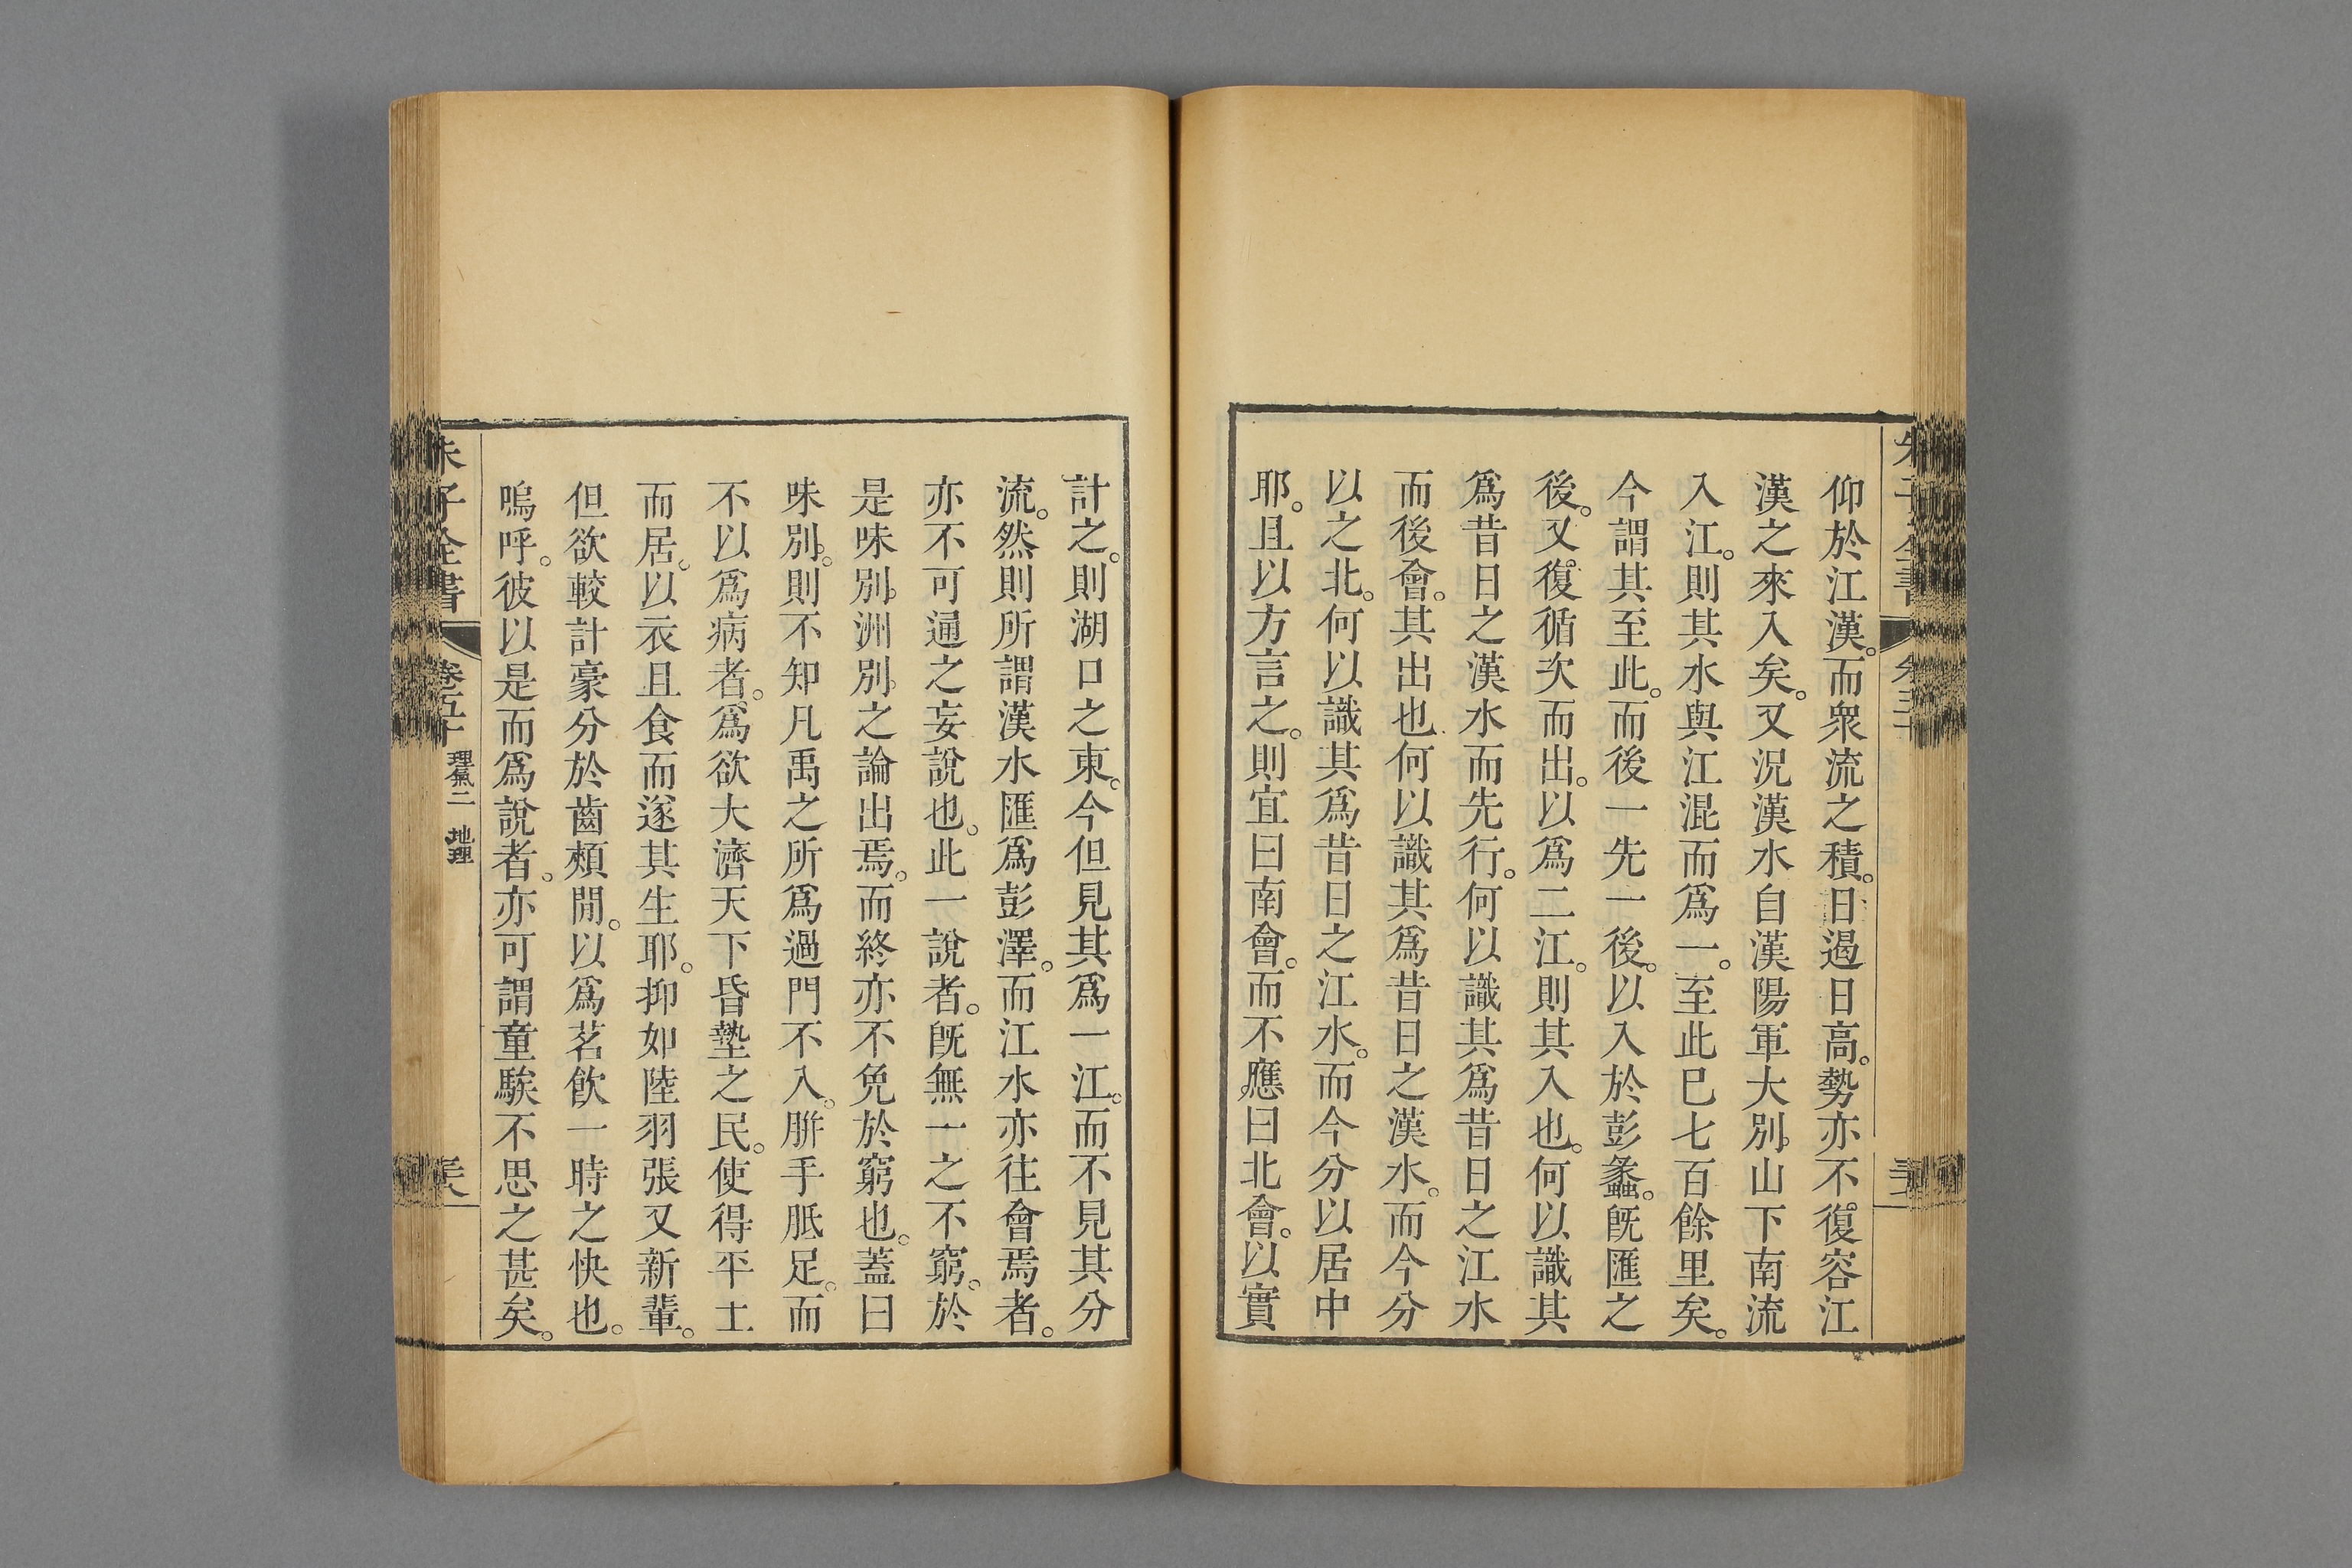 仰於江漢。而衆流之積。日遏日高。勢亦不復容江
漢之來入矣。又況漢水自漢陽軍大別山下南流
入江。則其水與江混而爲一。至此巳七百餘里矣。
今謂其至此。而後一先一後。以入於彭蠡。旣匯之
後。又復循次而出。以爲二江。則其入也。何以識其
爲昔日之漢水而先行。何以識其爲昔日之江水
而後會。其出也何以識其爲昔日之漢水。而今分
以之北。何以識其爲昔日之江水。而今分以居中
耶。且以方言之。則宜曰南會。而不應曰北會。以實
計之。則湖口之東。今但見其爲一江。而不見其分
流。然則所謂漢水匯爲彭澤。而江水亦往會焉者。
亦不可通之妄說也。此一說者。旣無一之不窮。於
是味別洲別之論出焉。而終亦不免於窮也。蓋曰
味別。則不知凡禹之所爲過門不入。胼手胝足。而
不以爲病者。爲欲大濟天下昏墊之民。使得平土
而居。以衣且食而遂其生耶。抑如陸羽張又新輩。
但欲較計豪分於齒頰閒。以爲茗飮一時之快也。
嗚呼。彼以是而爲說者。亦可謂童騃不思之甚矣。
朱子全書 卷五十 理氣二 地理